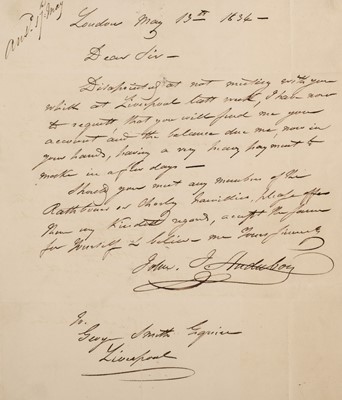 ansd. 17 May
London May 13th 1836 —
Dear Sir —
Disapointed at not meeting with you
whilst at Liverpool last week, I have now
to request that you will send me your
account and the balance due me, now in
your hands, having a very heavy payment to
make in a few days —
Should you meet any member of the
Rathbones or Chorley families, please offer
them my kindest regards, accept the same
for Yourself & believe me Yours sincerely
John. J. Audubon
To
Geoy Smith Esquire
Liverpool